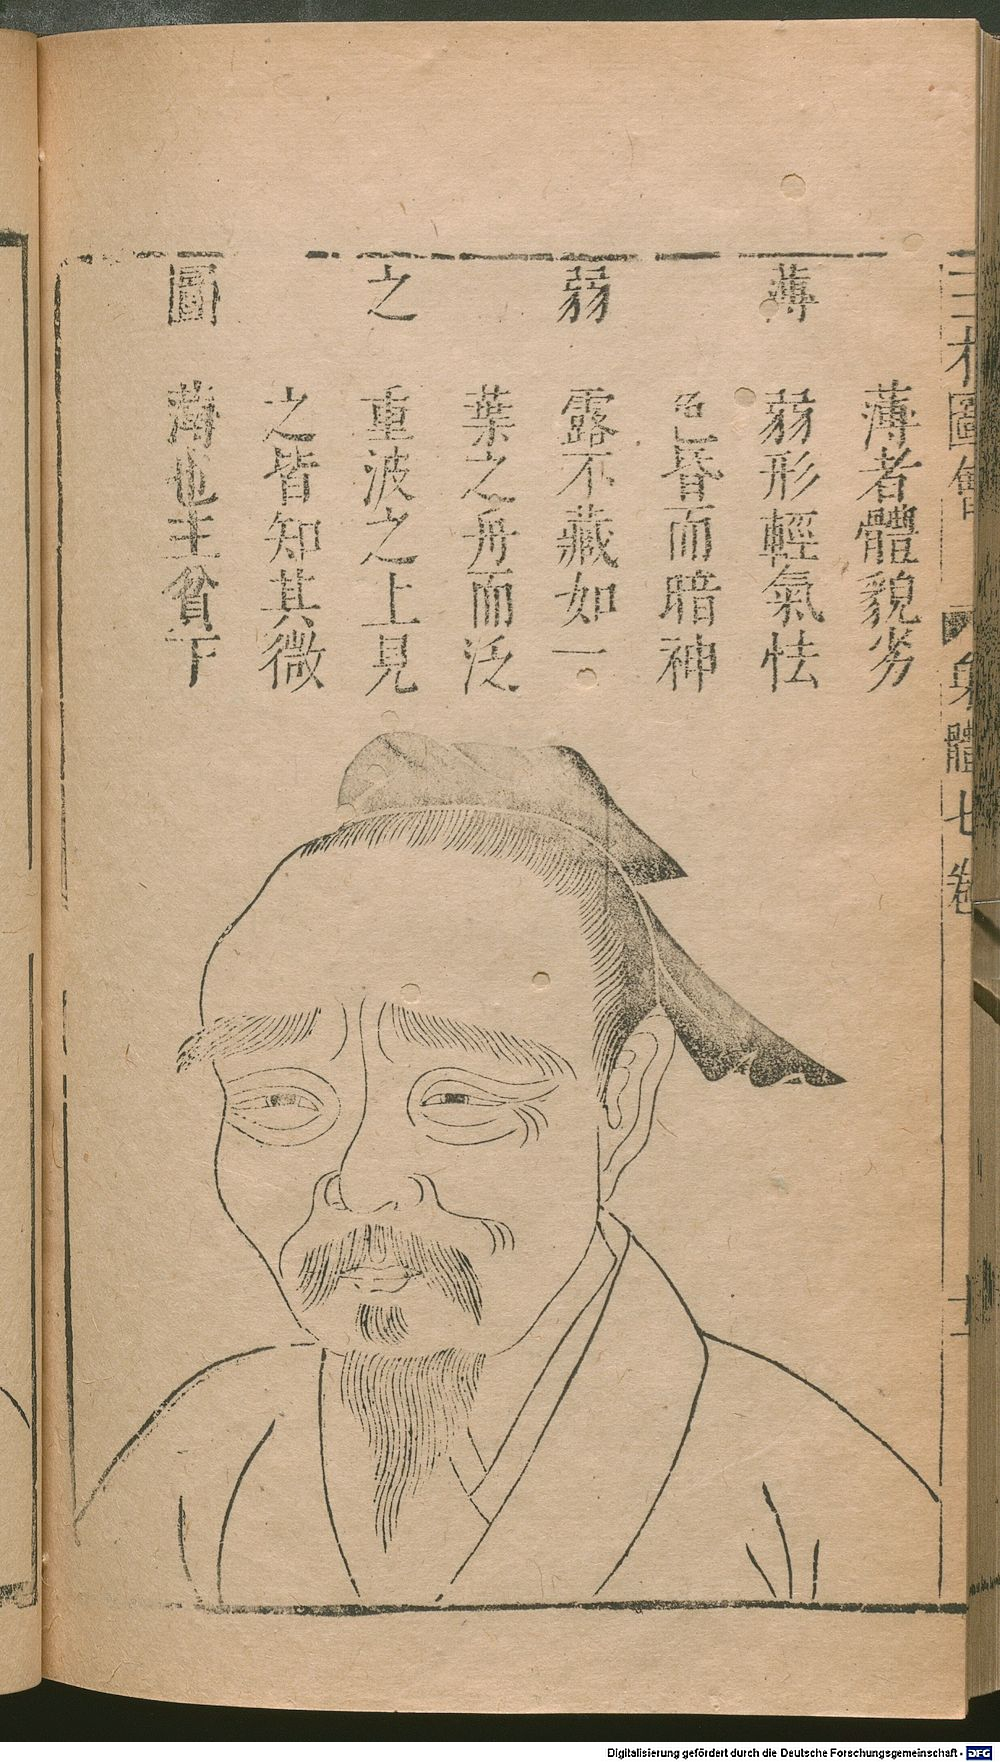 薄弱之圖
薄者體貌劣
弱形輕氣怯
色昏而暗神
露不藏如一
葉之舟而泛
重波之上見
之皆知其微
薄也主貧下
圖會
身體七卷
Digitalisierung gefördert durch die Deutsche Forschungsgemeinschaft - DFG